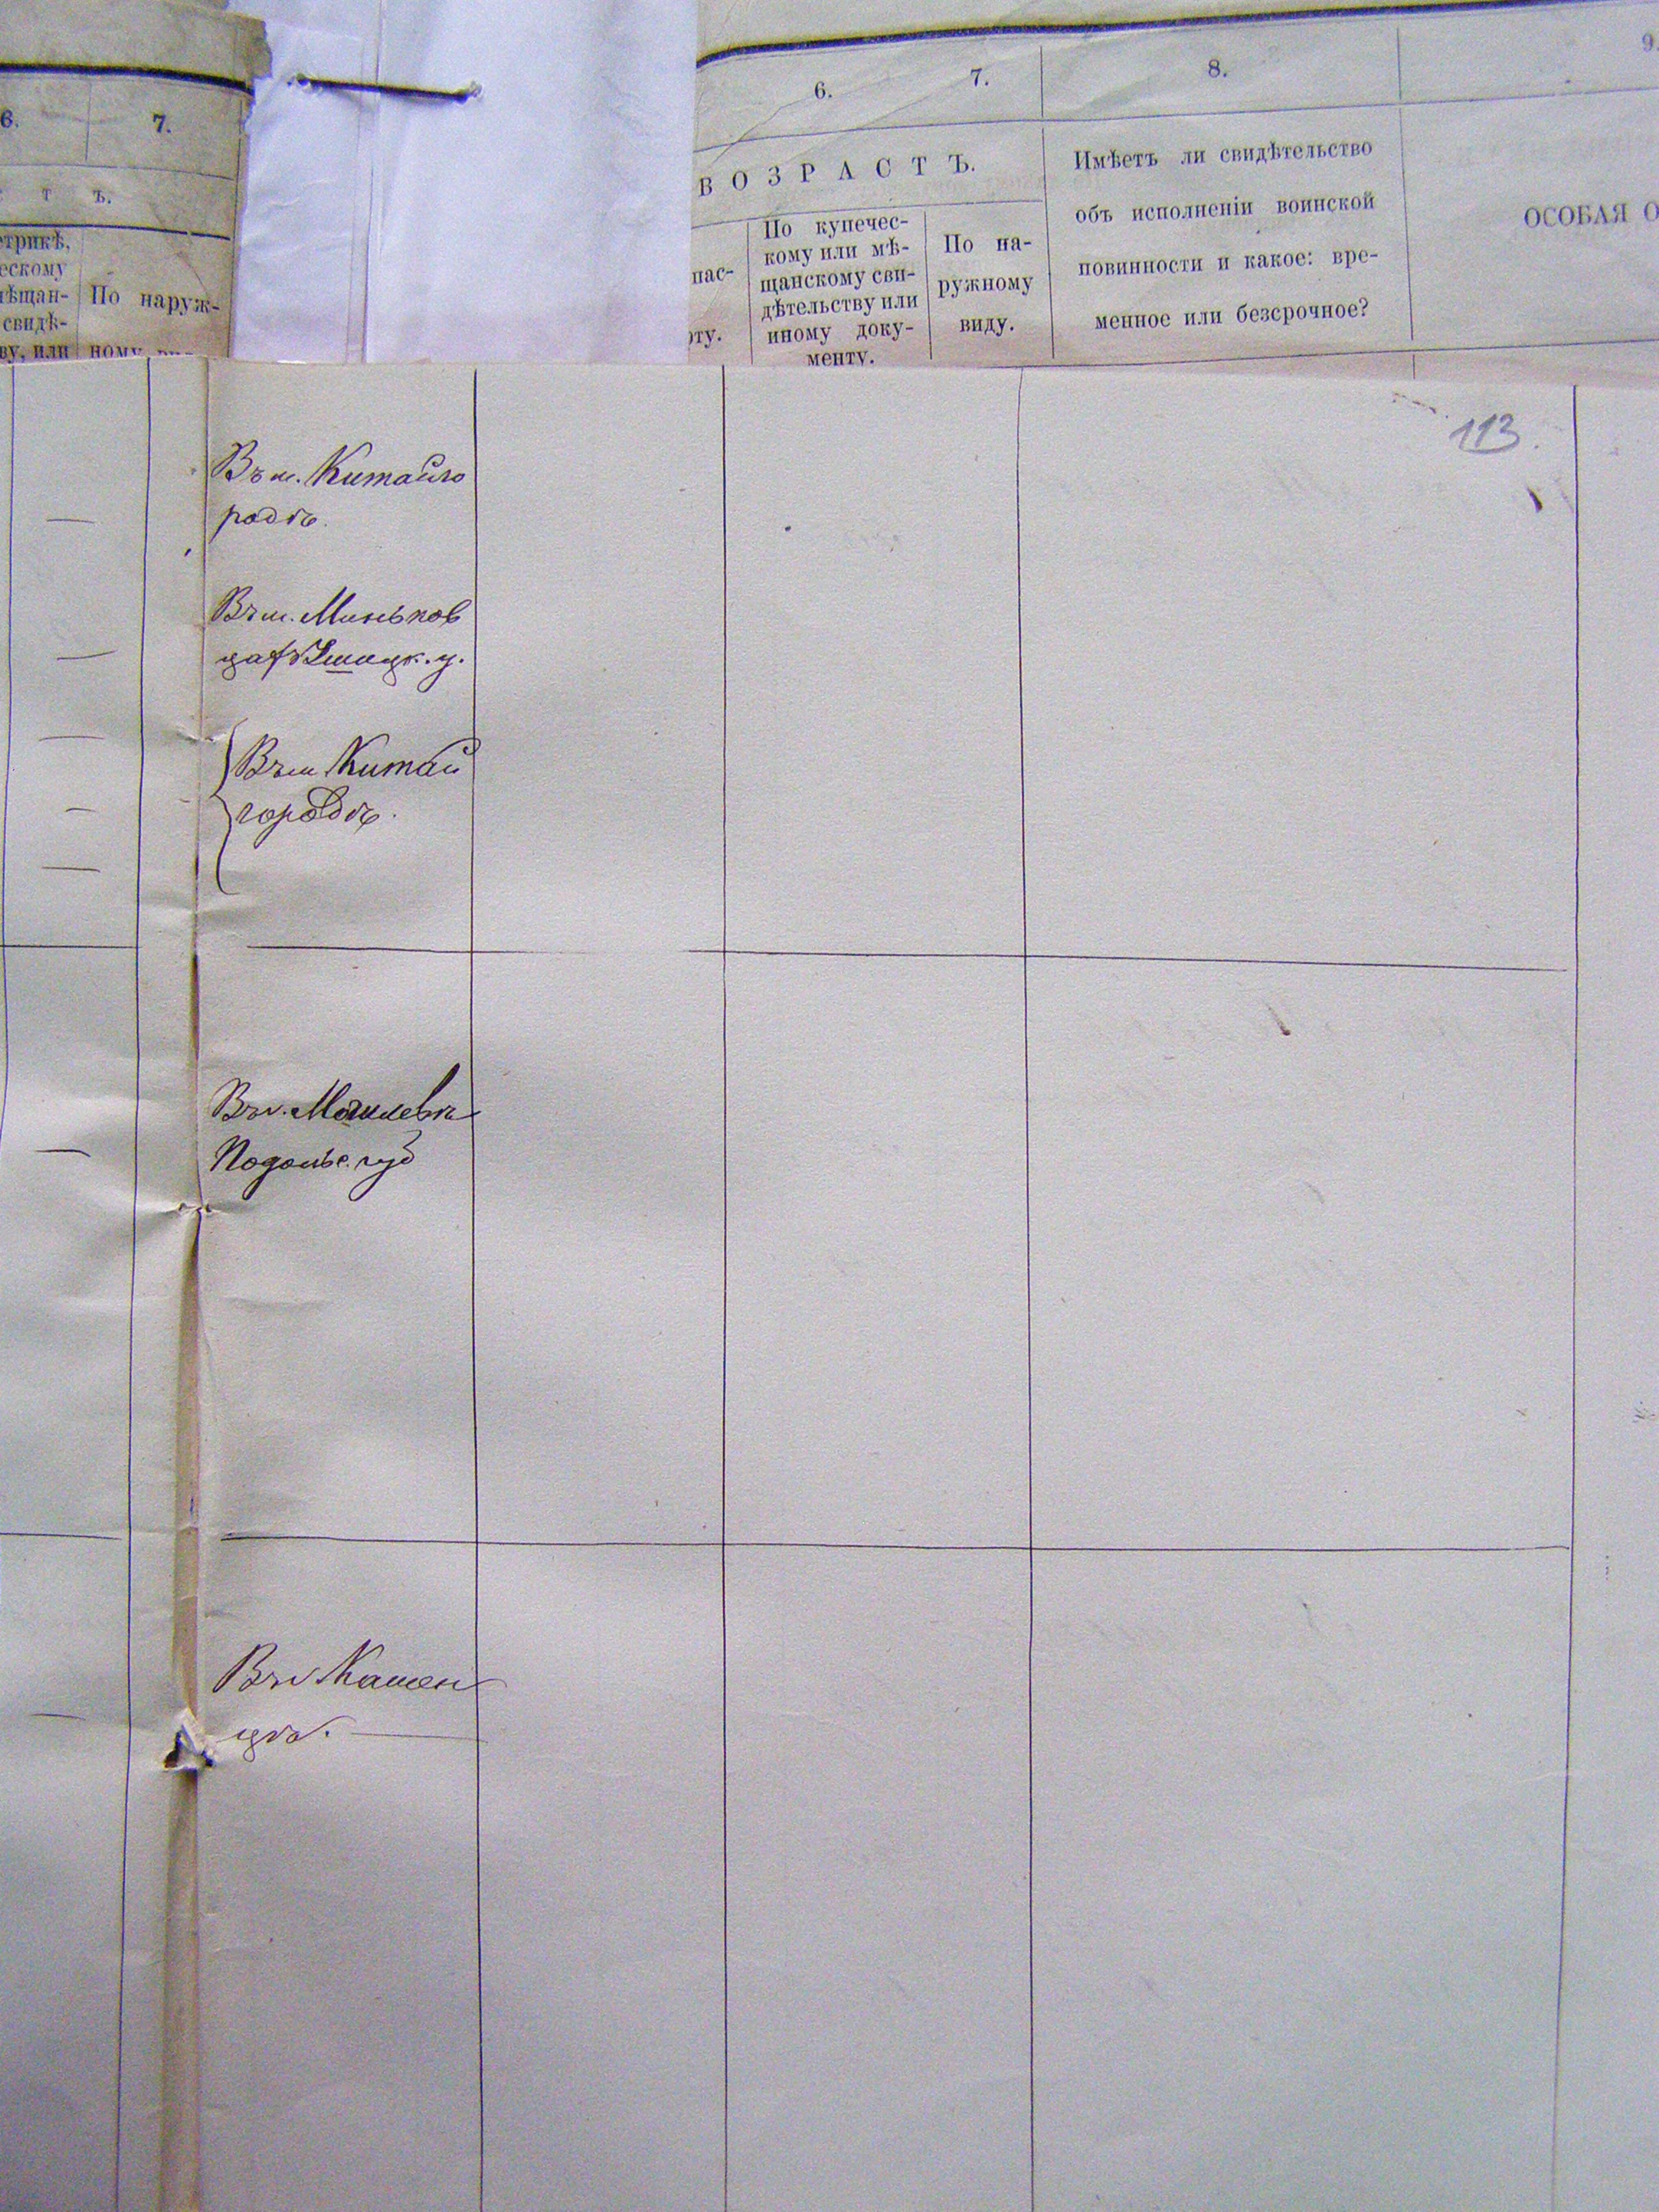 6.
7.
Т Ъ.
По наруж-
свидѣ-
6.
7.
8.
9.
ВОЗРАСТЪ.
По купечес-
кому или мѣ-
щанскому сви-
дѣтельству или
иному доку-
менту.
По на-
ружному
виду.
Имѣетъ ли свидѣтельство
объ исполненіи воинской
повинности и какое: вре-
менное или безсрочное?
ОСОБАЯ О
113.
Въ м. Китайго
родѣ.
Въ м. Миньков
цахъ Ушицк. у.
Въ м Китай
городѣ.
Въ г. Могилевѣ
Подольс. губ
Въ г Камен
цѣ.